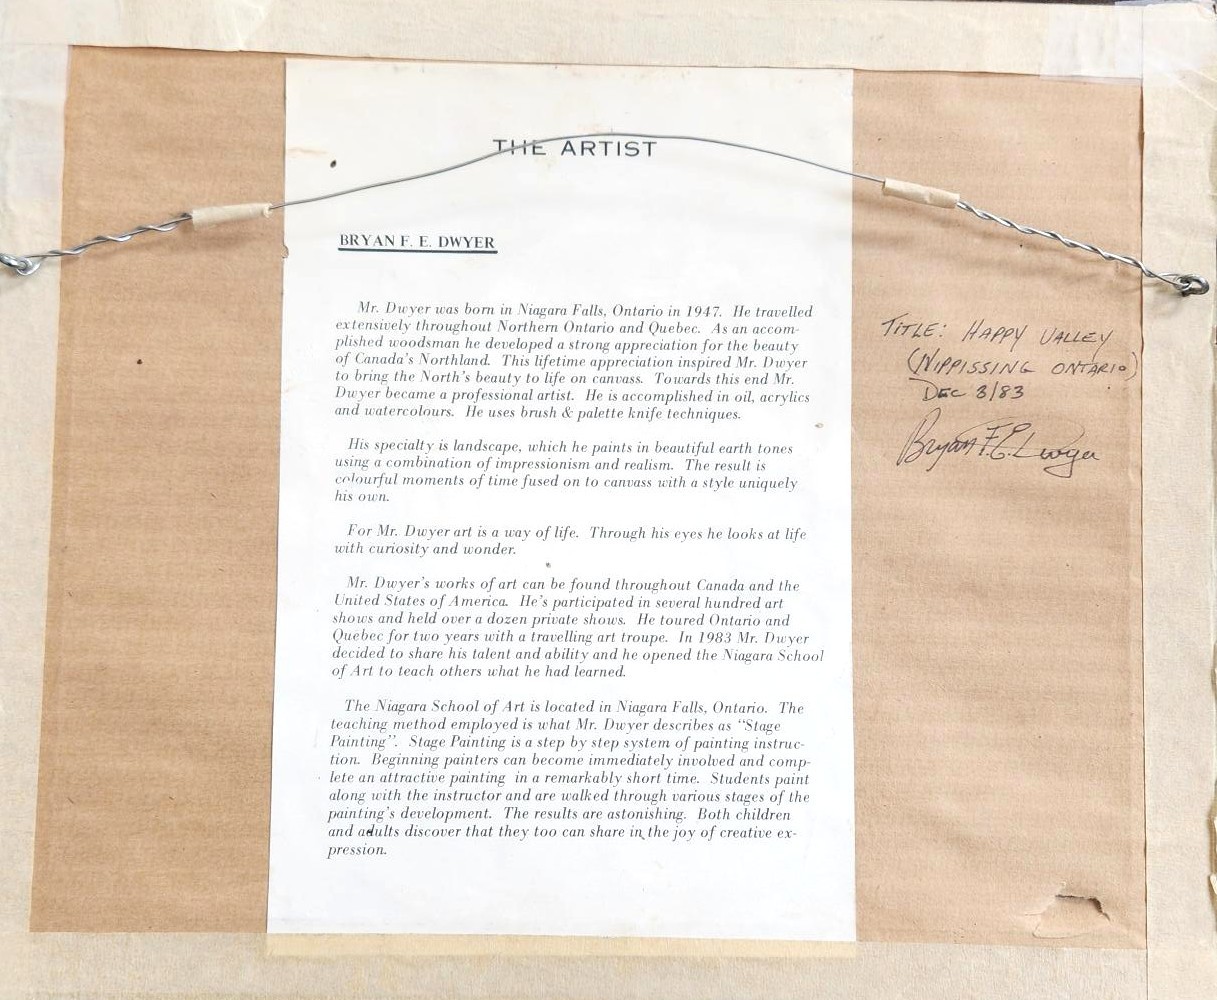 THE ARTIST
BRYAN F. E. DWYER
Mr. Dwyer was born in Niagara Falls, Ontario in 1947. He travelled
extensively throughout Northern Ontario and Quebec. As an accom-
plished woodsman he developed a strong appreciation for the beauty
of Canada's Northland. This lifetime appreciation inspired Mr. Dwyer
to bring the North's beauty to life on canvass. Towards this end Mr.
Dwyer became a professional artist. He is accomplished in oil, acrylics
and watercolours. He uses brush & palette knife techniques.
His specialty is landscape, which he paints in beautiful earth tones
using a combination of impressionism and realism. The result is
colourful moments of time fused on to canvass with a style uniquely
his own.
For Mr. Dwyer art is a way of life. Through his eyes he looks at life
with curiosity and wonder.
Mr. Dwyer's works of art can be found throughout Canada and the
United States of America. He's participated in several hundred art
shows and held over a dozen private shows. He toured Ontario and
Quebec for two years with a travelling art troupe. In 1983 Mr. Dwyer
decided to share his talent and ability and he opened the Niagara School
of Art to teach others what he had learned.
The Niagara School of Art is located in Niagara Falls, Ontario. The
teaching method employed is what Mr. Dwyer describes as "Stage
Painting". Stage Painting is a step by step system of painting instruc-
tion. Beginning painters can become immediately involved and comp-
lete an attractive painting in a remarkably short time. Students paint
along with the instructor and are walked through various stages of the
painting's development. The results are astonishing. Both children
and adults discover that they too can share in the joy of creative ex-
pression.
TITLE: HAPPY VALLEY
(NIPPISSING ONTARIO)
DEC 3/83
Bryan F.E. Dwyer